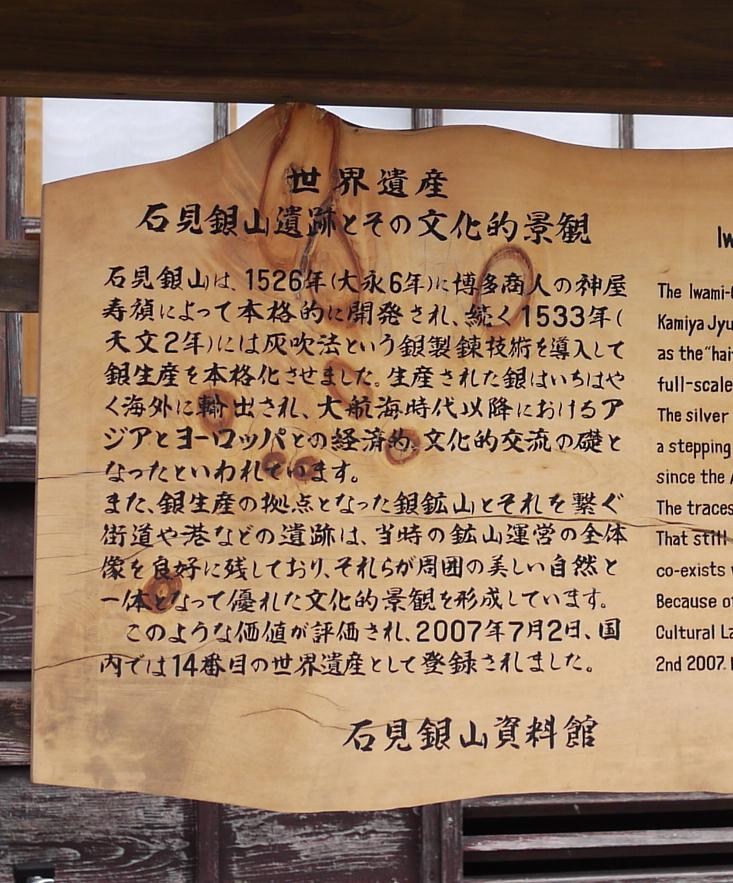 世界遺産
石見銀山遺跡とその文化的景観
石見銀山は、1526年(大永6年)に博多商人の神屋
寿禎によって本格的に開発され、続く1533年(
天文2年)には灰吹法という銀製錬技術を導入して
銀生産を本格化させました。生産された銀はいちはや
く海外に輸出され、大航海時代以降におけるア
ジアとヨーロッパとの経済的、文化的交流の礎と
なったといわれています。
また、銀生産の拠点となった銀鉱山とそれを繋ぐ
街道や港などの遺跡は、当時の鉱山運営の全体
像を良好に残しており、それらが周囲の美しい自然と
一体となって優れた文化的景観を形成しています。
このような価値が評価され、2007年7月2日、国
内では14番目の世界遺産として登録されました。
石見銀山資料館
Iw
The Iwami-
Kamiya Jyu
as the "hai
full-scale
The silver
a stepping
since the
The traces
That still
co-exists
Because of
Cultural La
2nd 2007.